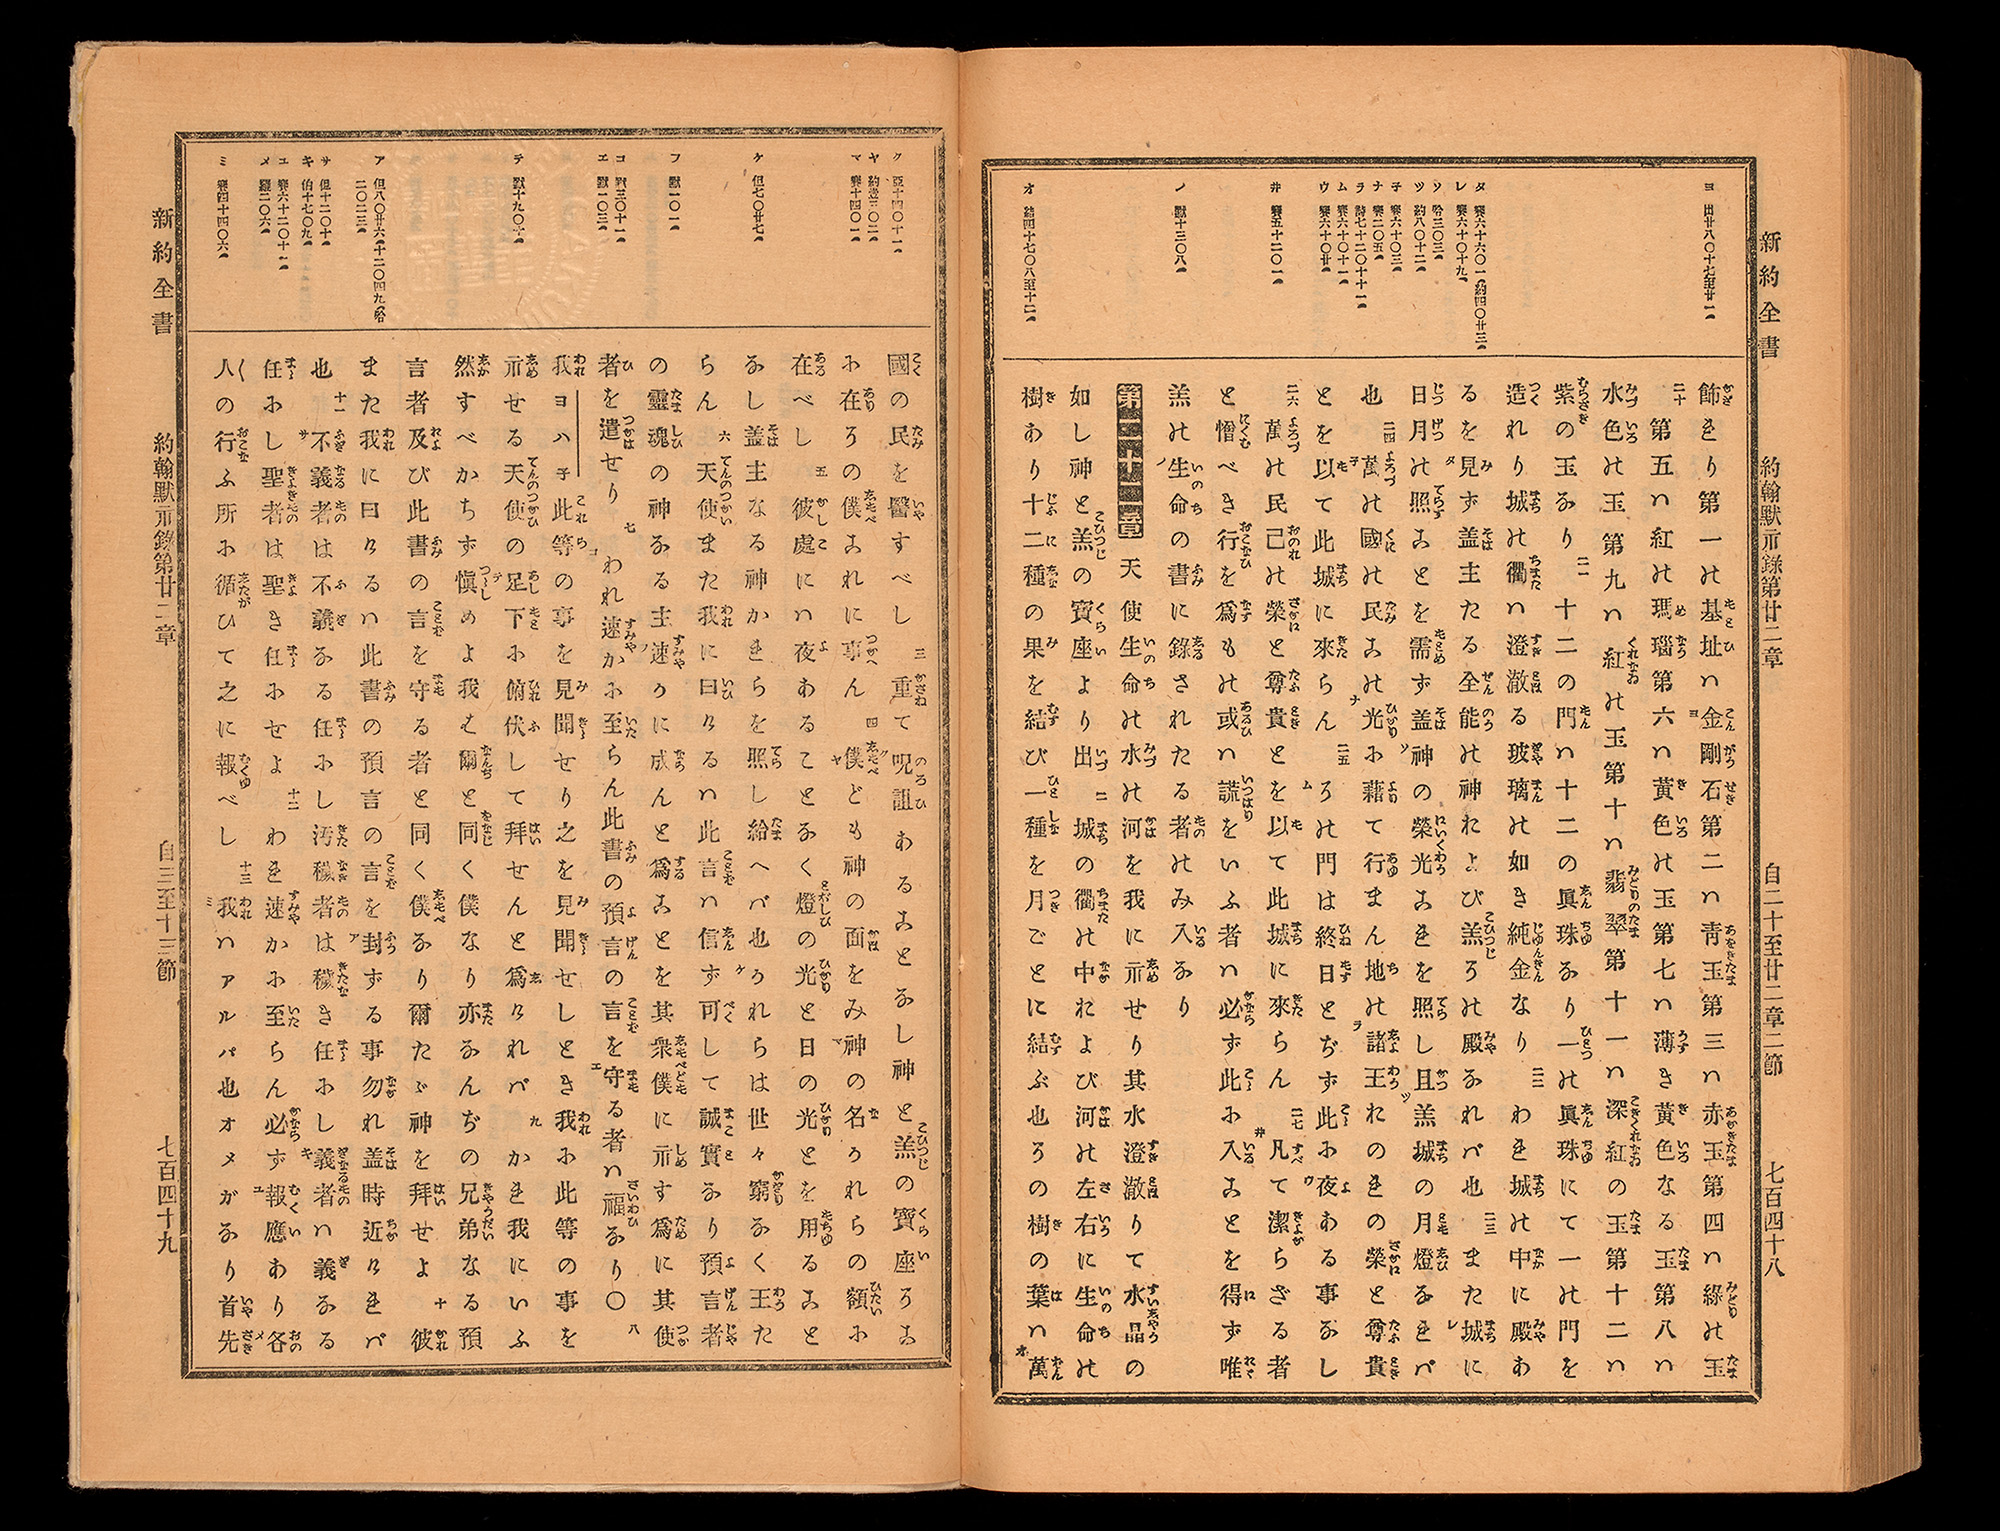 新約全書
約翰默示錄第廿二章
自二十至廿二章二節
七百四十八
ヨ 出廿八〇十七至廿一
タ 賽六十六〇一 約四〇廿三
レ 賽六十〇十九
ソ 哈三〇三
ツ 約八〇十二
子 賽六十〇三
ナ 賽二〇五
ラ 詩七十二〇十一
ム 賽六十〇十一
ウ 賽六十〇廿
井 賽五十二〇一
ノ 默十三〇八
オ 結四十七〇八至十二
飾きり第一の基址ハ金剛石第二ハ靑玉第三ハ赤玉第四ハ綠の玉
二十 第五ハ紅の瑪瑙第六ハ黃色の玉第七ハ薄き黃色なる玉第八ハ
水色の玉第九ハ紅の玉第十ハ翡翠第十一ハ深紅の玉第十二ハ
紫の玉なり 二一 十二の門ハ十二の眞珠なり一の眞珠にて一の門を
造れり城の衢ハ澄澈る玻璃の如き純金なり 二二 われ城の中に殿あ
るを見ず蓋主たる全能の神および羔そのの殿なれバ也 二三 また城に
日月の照ことを需ず蓋神の榮光これを照し且羔城の月燈なれバ
也 二四 萬の國の民この光に藉て行まん地の諸王おのれの榮と尊貴
とを以て此城に來らん 二五 その門は終日とぢず此に夜ある事なし
二六 萬の民己の榮と尊貴とを以て此城に來らん 二七 凡て潔らざる者
と憎べき行を爲もの或ハ謊をいふ者ハ必ず此に入ことを得ず唯
羔の生命の書に錄されたる者のみ入なり
第二十二章 天使生命の水の河を我に示せり其水澄澈りて水晶の
如し神と羔の寶座より出 二 城の衢の中および河の左右に生命の
樹あり十二種の果を結び一種を月ごとに結ぶ也その樹の葉ハ萬
新約全書
約翰默示錄第廿二章
自三至十三節
七百四十九
ク 亞十四〇十一
ヤ 約壹三〇二
マ 賽十四〇一
ケ 但七〇廿七
フ 默一〇一
コ 默三〇十一
エ 默一〇三
テ 默十九〇十
ア 但八〇廿六 十二〇四九
サ 但十二〇十
キ 伯十七〇九
ユ 賽六十二〇十一
メ 羅二〇六
ミ 賽四十四〇六
國の民を醫すべし 三 重て呪詛あることなし神と羔の寶座そこ
に在りその僕これに事ん 四 僕ども神の面をみ神の名かれらの額に
在べし 五 彼處にハ夜あることなく燈の光と日の光とを用ること
なし蓋主なる神かれらを照し給へバ也かれらは世々窮なく王た
らん 六 天使また我に曰けるハ此言ハ信ず可して誠實なり預言者
の靈魂の神なる主速かに成んと爲ことを其衆僕に示す爲に其使
者を遣せり 七 われ速かに至らん此書の預言の言を守る者ハ福なり〇 八
我ヨハ子此等の事を見聞せり之を見聞せしとき我に此等の事を
示せる天使の足下に俯伏して拜せんと爲けれバ 九 かれ我にいふ
然すべかちず愼めよ我も爾と同く僕なり亦なんぢの兄弟なる預
言者及び此書の言を守る者と同く僕なり爾たゞ神を拜せよ 十 彼
また我に曰けるハ此書の預言の言を封ずる事勿れ蓋時近けれバ
也 十一 不義者は不義なる任にし汚穢者は穢き任にし義者ハ義なる
任にし聖者は聖き任にせよ 十二 われ速かに至らん必ず報應あり各
人の行ふ所に循ひて之に報べし 十三 我ハアルパ也オメガなり首先